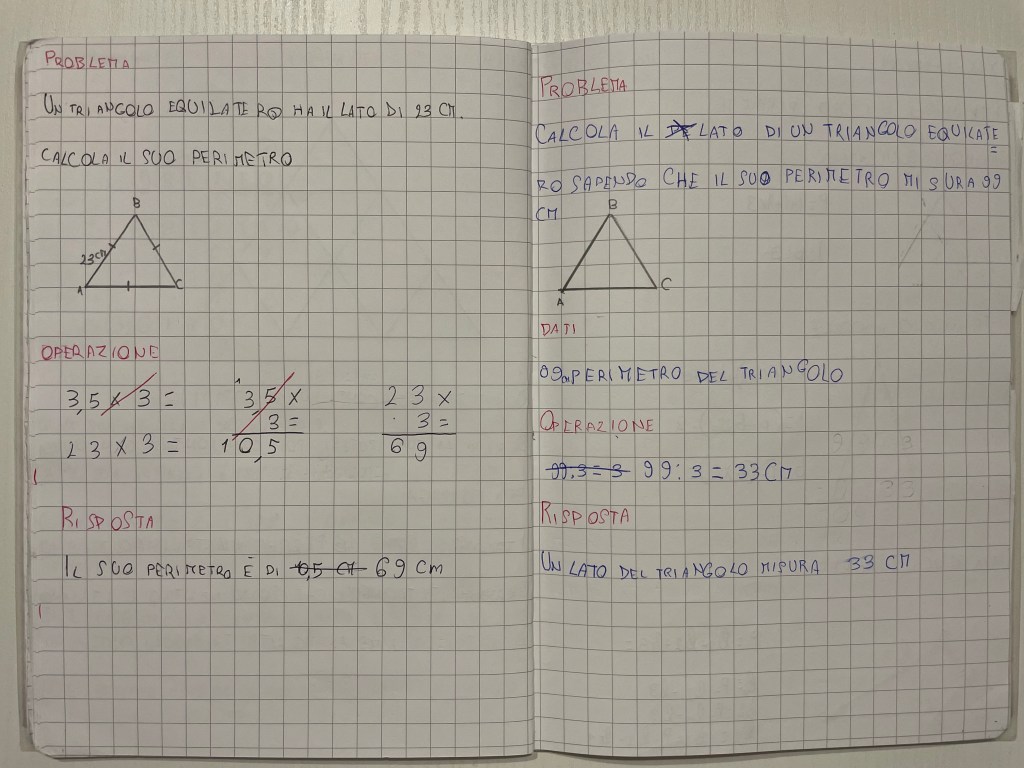 PROBLEMA
UN TRIANGOLO EQUILATERO HA IL LATO DI 23 CM.
CALCOLA IL SUO PERIMETRO
B
23CM
A
C
OPERAZIONE
3,5 x 3 =
23 x 3 =
1
3 5 x
3 =
10,5
23 x
3 =
69
RISPOSTA
IL SUO PERIMETRO È DI 69 Cm
PROBLEMA
CALCOLA IL LATO DI UN TRIANGOLO EQUILATE=
RO SAPENDO CHE IL SUO PERIMETRO MISURA 99
CM
B
A
C
DATI
PERIMETRO DEL TRIANGOLO
OPERAZIONE
99:3=3 99:3=33CM
RISPOSTA
UN LATO DEL TRIANGOLO MISURA 33 CM